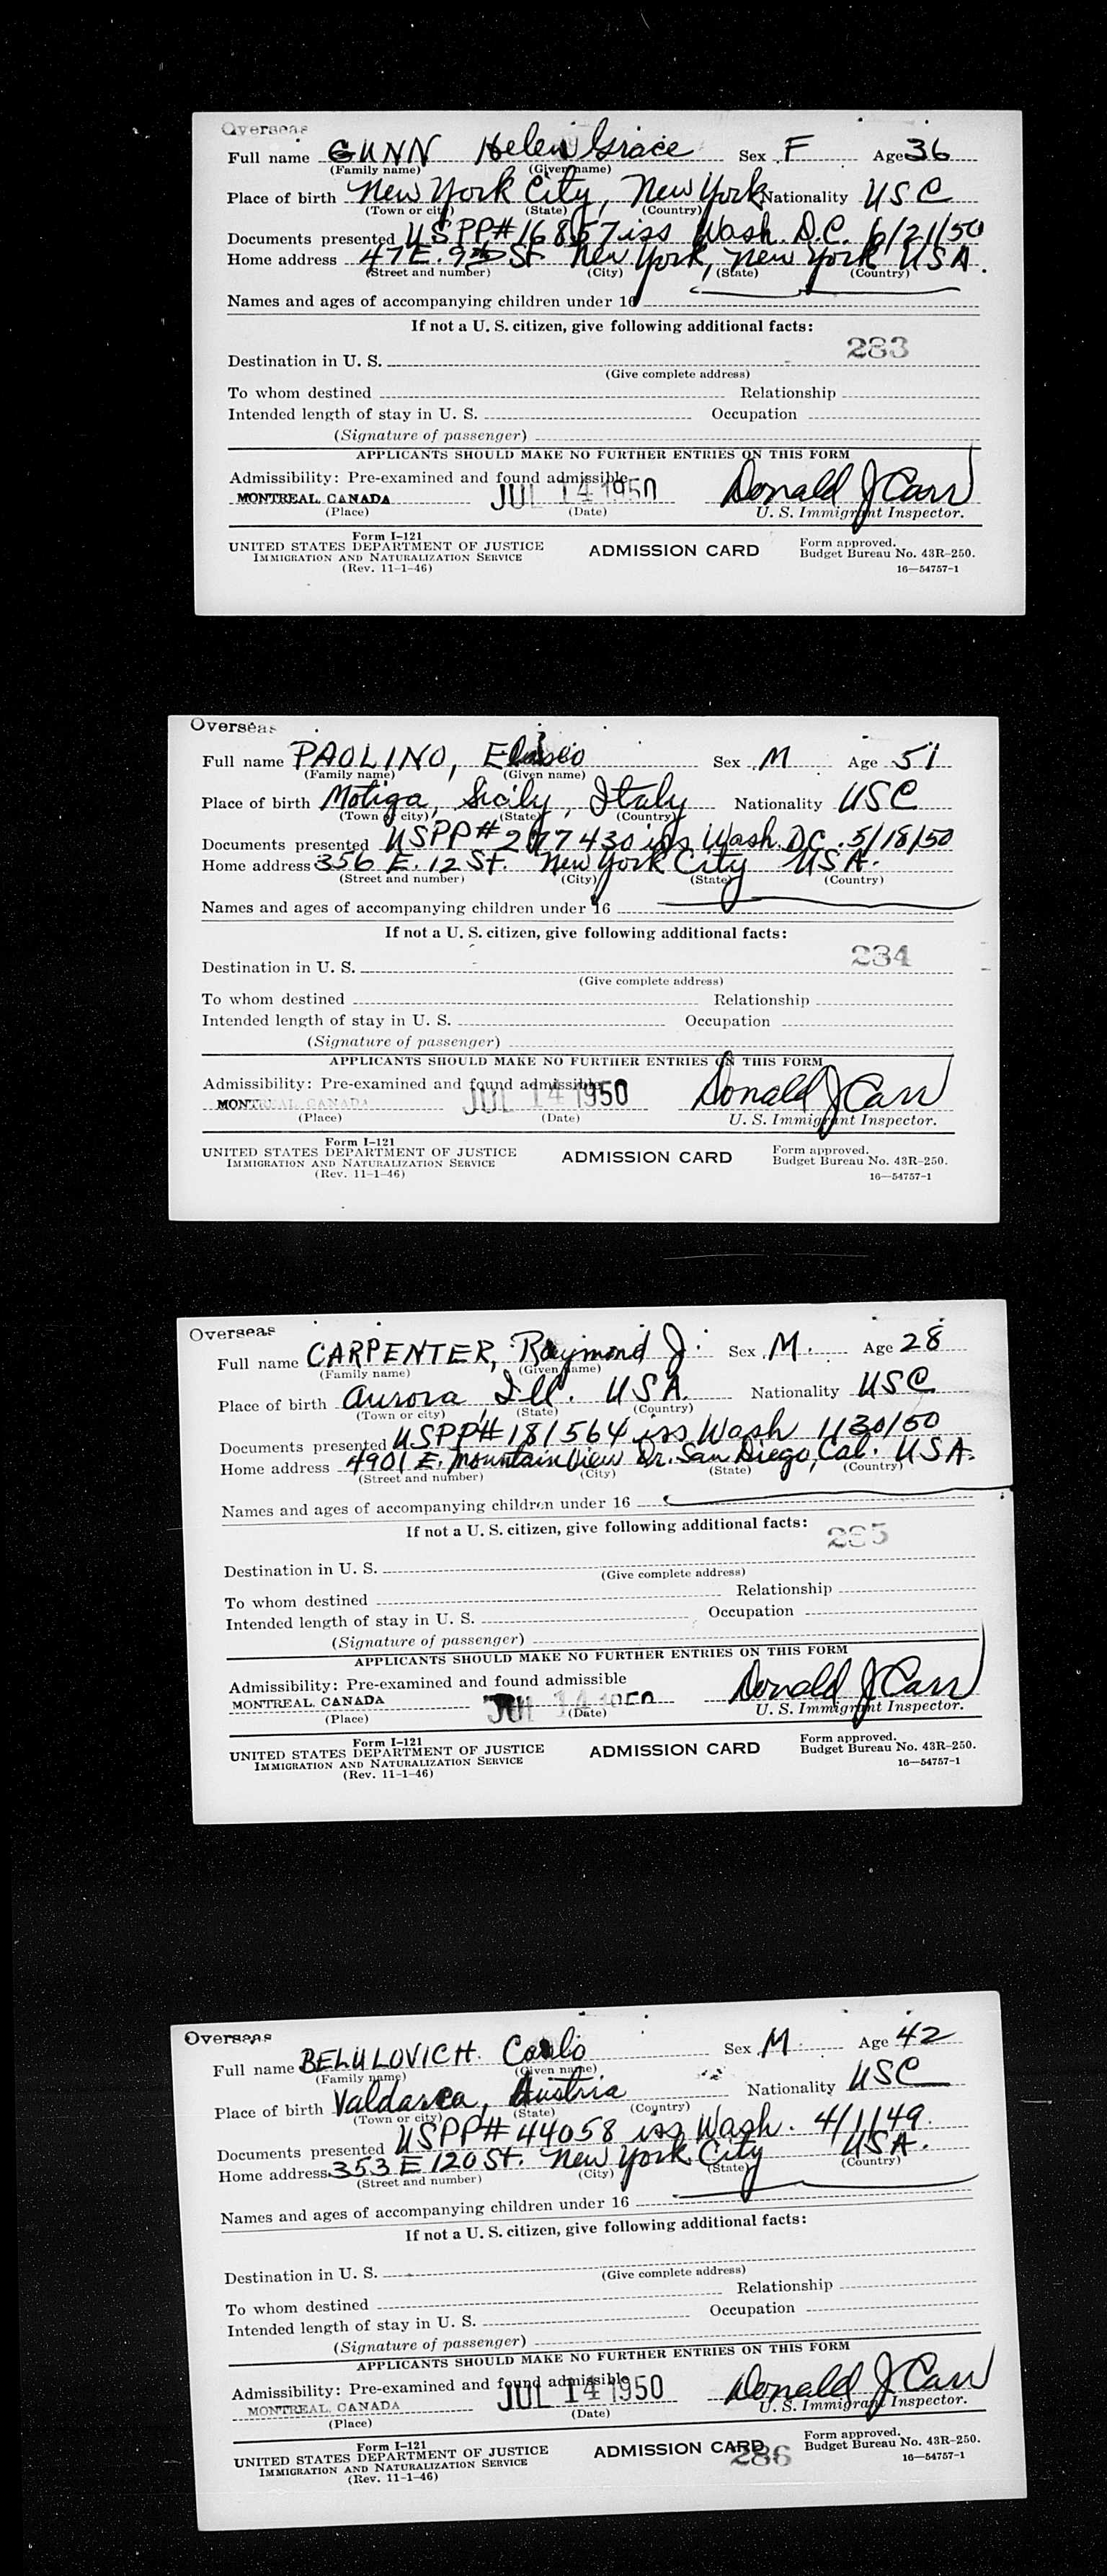 Overseas
Full name GUNN Helen Grace Sex F Age 36
(Family name) (Given name)
Place of birth New York City, New York Nationality USC
(Town or city) (State) (Country)
Documents presented USPP# 16857 iss Wash. D.C. 6/21/50
Home address 47 E. St New York, New York USA.
(Street and number) (City) (State) (Country)
Names and ages of accompanying children under 16
If not a U. S. citizen, give following additional facts:
283
Destination in U. S.
(Give complete address)
To whom destined Relationship
Intended length of stay in U. S. Occupation
(Signature of passenger)
APPLICANTS SHOULD MAKE NO FURTHER ENTRIES ON THIS FORM
Admissibility: Pre-examined and found admissible
MONTREAL, CANADA JUL 14 1950 Donald J Carr
(Place) (Date) U. S. Immigrant Inspector.
Form I-121
UNITED STATES DEPARTMENT OF JUSTICE
IMMIGRATION AND NATURALIZATION SERVICE
(Rev. 11-1-46)
ADMISSION CARD
Form approved.
Budget Bureau No. 43R-250.
16—54757-1
Overseas
Full name PAOLINO, Sex M Age 51
(Family name) (Given name)
Place of birth Motiga, Sicily, Italy Nationality USC
(Town or city) (State) (Country)
Documents presented USPP# iss Wash. DC. 5/18/50
Home address 356 E. 12 St. New York City USA.
(Street and number) (City) (State) (Country)
Names and ages of accompanying children under 16
If not a U. S. citizen, give following additional facts:
284
Destination in U. S.
(Give complete address)
To whom destined Relationship
Intended length of stay in U. S. Occupation
(Signature of passenger)
APPLICANTS SHOULD MAKE NO FURTHER ENTRIES ON THIS FORM
Admissibility: Pre-examined and found admissible
MONTREAL, CANADA JUL 14 1950 Donald J Carr
(Place) (Date) U. S. Immigrant Inspector.
Form I-121
UNITED STATES DEPARTMENT OF JUSTICE
IMMIGRATION AND NATURALIZATION SERVICE
(Rev. 11-1-46)
ADMISSION CARD
Form approved.
Budget Bureau No. 43R-250.
16—54757-1
Overseas
Full name CARPENTER, Raymond J. Sex M. Age 28
(Family name) (Given name)
Place of birth Aurora, Ill. USA. Nationality USC
(Town or city) (State) (Country)
Documents presented USPP# 181564 iss Wash 1/30/50
Home address 4901 E. Mountain View Dr. San Diego, Cal. USA.
(Street and number) (City) (State) (Country)
Names and ages of accompanying children under 16
If not a U. S. citizen, give following additional facts:
285
Destination in U. S.
(Give complete address)
To whom destined Relationship
Intended length of stay in U. S. Occupation
(Signature of passenger)
APPLICANTS SHOULD MAKE NO FURTHER ENTRIES ON THIS FORM
Admissibility: Pre-examined and found admissible
MONTREAL, CANADA JUL 14 1950 Donald J Carr
(Place) (Date) U. S. Immigrant Inspector.
Form I-121
UNITED STATES DEPARTMENT OF JUSTICE
IMMIGRATION AND NATURALIZATION SERVICE
(Rev. 11-1-46)
ADMISSION CARD
Form approved.
Budget Bureau No. 43R-250.
16—54757-1
Overseas
Full name BELULOVICH. Carlo Sex M. Age 42
(Family name) (Given name)
Place of birth Austria Nationality USC
(Town or city) (State) (Country)
Documents presented USPP# 44058 iss Wash. 4/1/49.
Home address 353 E 120 St. New York City USA.
(Street and number) (City) (State) (Country)
Names and ages of accompanying children under 16
If not a U. S. citizen, give following additional facts:
Destination in U. S.
(Give complete address)
To whom destined Relationship
Intended length of stay in U. S. Occupation
(Signature of passenger)
APPLICANTS SHOULD MAKE NO FURTHER ENTRIES ON THIS FORM
Admissibility: Pre-examined and found admissible
MONTREAL, CANADA JUL 14 1950 Donald J Carr
(Place) (Date) U. S. Immigrant Inspector.
Form I-121
UNITED STATES DEPARTMENT OF JUSTICE
IMMIGRATION AND NATURALIZATION SERVICE
(Rev. 11-1-46)
ADMISSION CARD
286
Form approved.
Budget Bureau No. 43R-250.
16—54757-1